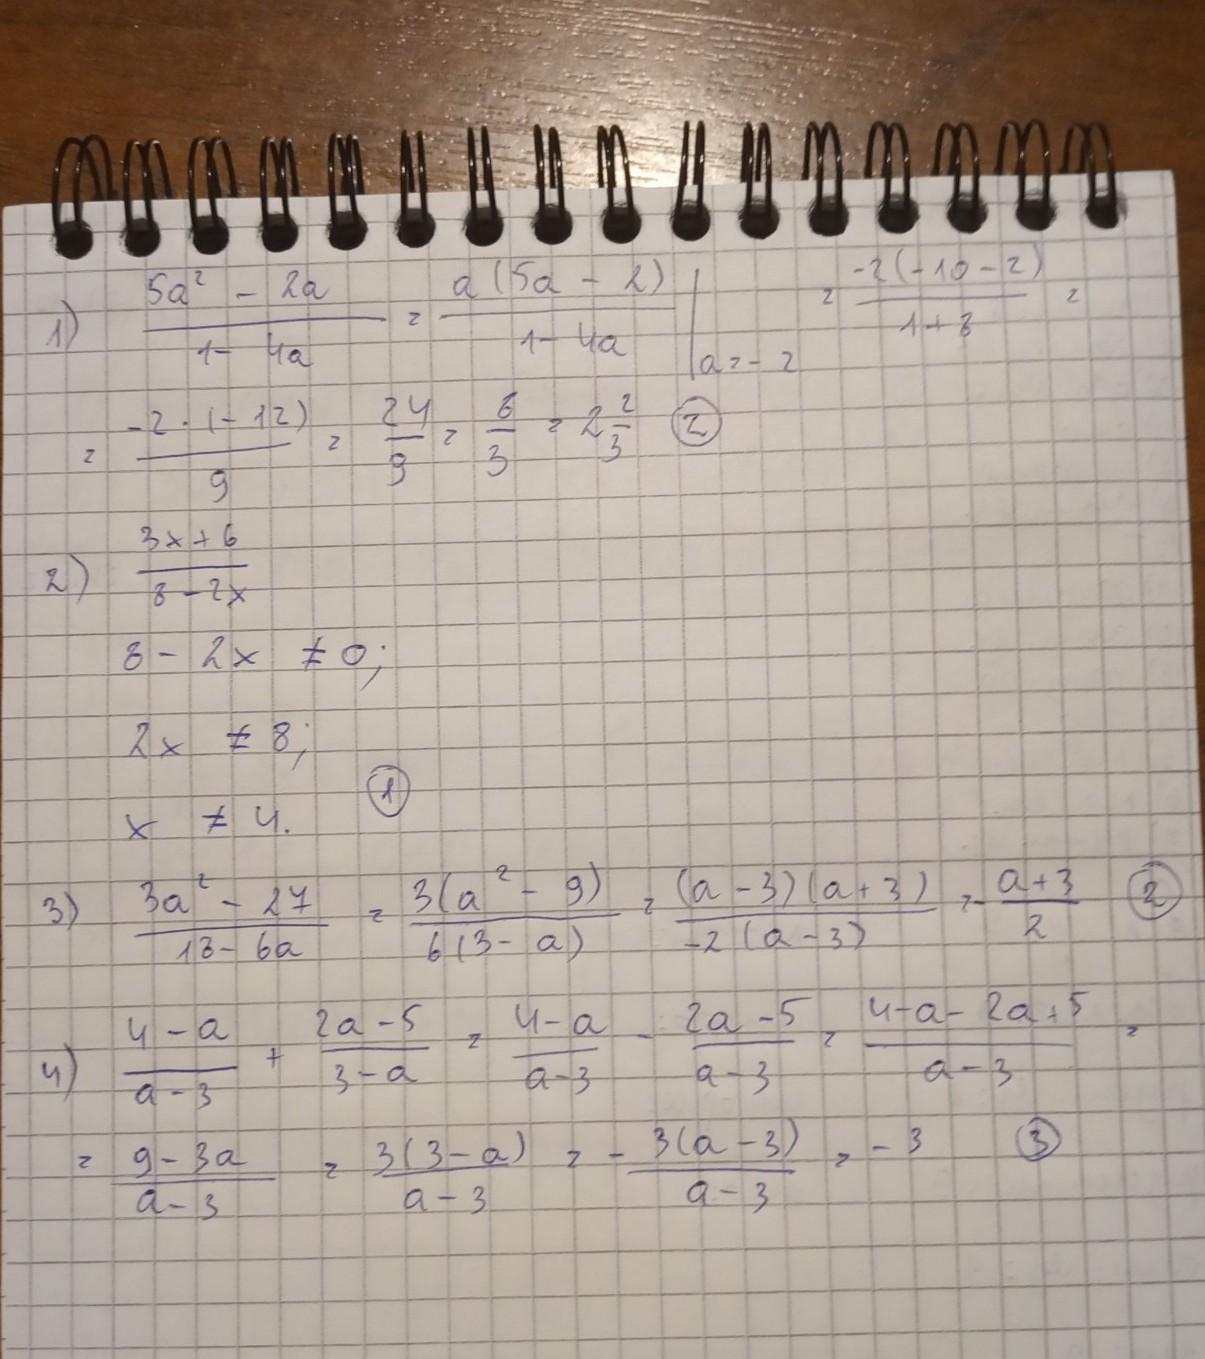 1) (5a² - 2a)/(1 - 4a) = a(5a - 2)/(1 - 4a) | a = -2 = -2(-10 - 2)/(1 + 8) =
= -2 · (-12)/9 = 24/9 = 8/3 = 2 2/3 ②
2) (3x + 6)/(8 - 2x)
8 - 2x ≠ 0;
2x ≠ 8;
x ≠ 4. ①
3) (3a² - 27)/(18 - 6a) = 3(a² - 9)/6(3 - a) = (a - 3)(a + 3)/-2(a - 3) = - (a + 3)/2 ②
4) (4 - a)/(a - 3) + (2a - 5)/(3 - a) = (4 - a)/(a - 3) - (2a - 5)/(a - 3) = (4 - a - 2a + 5)/(a - 3) =
= (9 - 3a)/(a - 3) = 3(3 - a)/(a - 3) = - 3(a - 3)/(a - 3) = - 3 ③